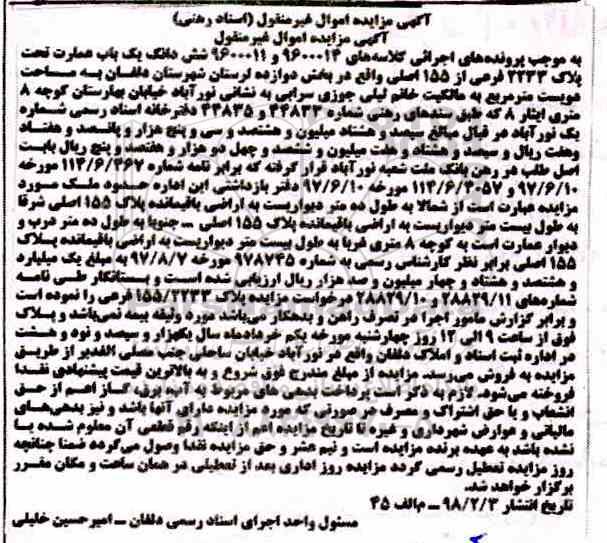 آگهی مزایده اموال غیرمنقول (اسناد رهنی)
آگهی مزایده اموال غیرمنقول
به موجب پرونده‌های اجرائی کلاسه‌های ۹۶۰۰۰۱۴ و ۹۶۰۰۰۱۱ شش دانگ یک باب عمارت تحت
پلاک ۲۲۳۳ فرعی از ۱۵۵ اصلی واقع در بخش دوازده لرستان شهرستان دلفان به مساحت
دویست مترمربع به مالکیت خانم لیلی جوزی سرابی به نشانی نورآباد خیابان بهارستان کوچه ۸
متری ایثار ۸ که طبق سندهای رهنی شماره ۴۴۸۳۳ و ۴۴۸۳۵ دفترخانه اسناد رسمی شماره
یک نورآباد در قبال مبالغ سیصد و هشتاد میلیون و هشتصد و سی و پنج هزار و پانصد و هفتاد
وهفت ریال و سیصد و هشتاد و هفت میلیون و ششصد و چهل دو هزار و هفتصد و پنج ریال بابت
اصل طلب در رهن بانک ملت شعبه نورآباد قرار گرفته که برابر نامه شماره ۱۱۴/۶/۳۶۷ مورخه
۹۷/۶/۱۰ و ۱۱۴/۶/۳۰۵۷ مورخه ۹۷/۶/۱۰ دفتر بازداشتی این اداره حدود ملک مورد
مزایده عبارت است از شمالا به طول ده متر دیواریست به اراضی باقیمانده پلاک ۱۵۵ اصلی شرقا
به طول بیست متر دیواریست به اراضی باقیمانده پلاک ۱۵۵ اصلی ــ جنوبا به طول ده متر درب و
دیوار عمارت است به کوچه ۸ متری غربا به طول بیست متر دیواریست به اراضی باقیمانده پلاک
۱۵۵ اصلی برابر نظر کارشناس رسمی به شماره ۹۷۸۷۴۵ مورخه ۹۷/۸/۷ به مبلغ یک میلیارد
و هشتصد و هشتاد و چهار میلیون و صد هزار ریال ارزیابی شده است و بستانکار طی نامه
شماره‌های ۲۸۸۲۹/۱۱ و ۲۸۸۲۹/۱۰ درخواست مزایده پلاک ۱۵۵/۲۲۳۳ فرعی را نموده است
و برابر گزارش مامور اجرا در تصرف راهن و بدهکار می‌باشد مورد وثیقه بیمه نمی‌باشد و پلاک
فوق از ساعت ۹ الی ۱۲ روز چهارشنبه مورخه یکم خردادماه سال یکهزار و سیصد و نود و هشت
در اداره ثبت اسناد و املاک دلفان واقع در نورآباد خیابان ساحلی جنب مصلی الغدیر از طریق
مزایده به فروش می‌رسد. مزایده از مبلغ مندرج فوق شروع و به بالاترین قیمت پیشنهادی نقدا
فروخته می‌شود. لازم به ذکر است پرداخت بدهی های مربوط به آب، برق، گاز اعم از حق
انشعاب و یا حق اشتراک و مصرف در صورتی که مورد مزایده دارای آنها باشد و نیز بدهی‌های
مالیاتی و عوارض شهرداری و غیره تا تاریخ مزایده اعم از اینکه رقم قطعی آن معلوم شده یا
نشده باشد به عهده برنده مزایده است و نیم عشر و حق مزایده نقدا وصول می‌گردد ضمنا چنانچه
روز مزایده تعطیل رسمی گردد مزایده روز اداری بعد از تعطیلی در همان ساعت و مکان مقرر
برگزار خواهد شد.
تاریخ انتشار ۹۸/۲/۳ ــ م‌الف ۴۵
مسئول واحد اجرای اسناد رسمی دلفان ــ امیرحسین خلیلی